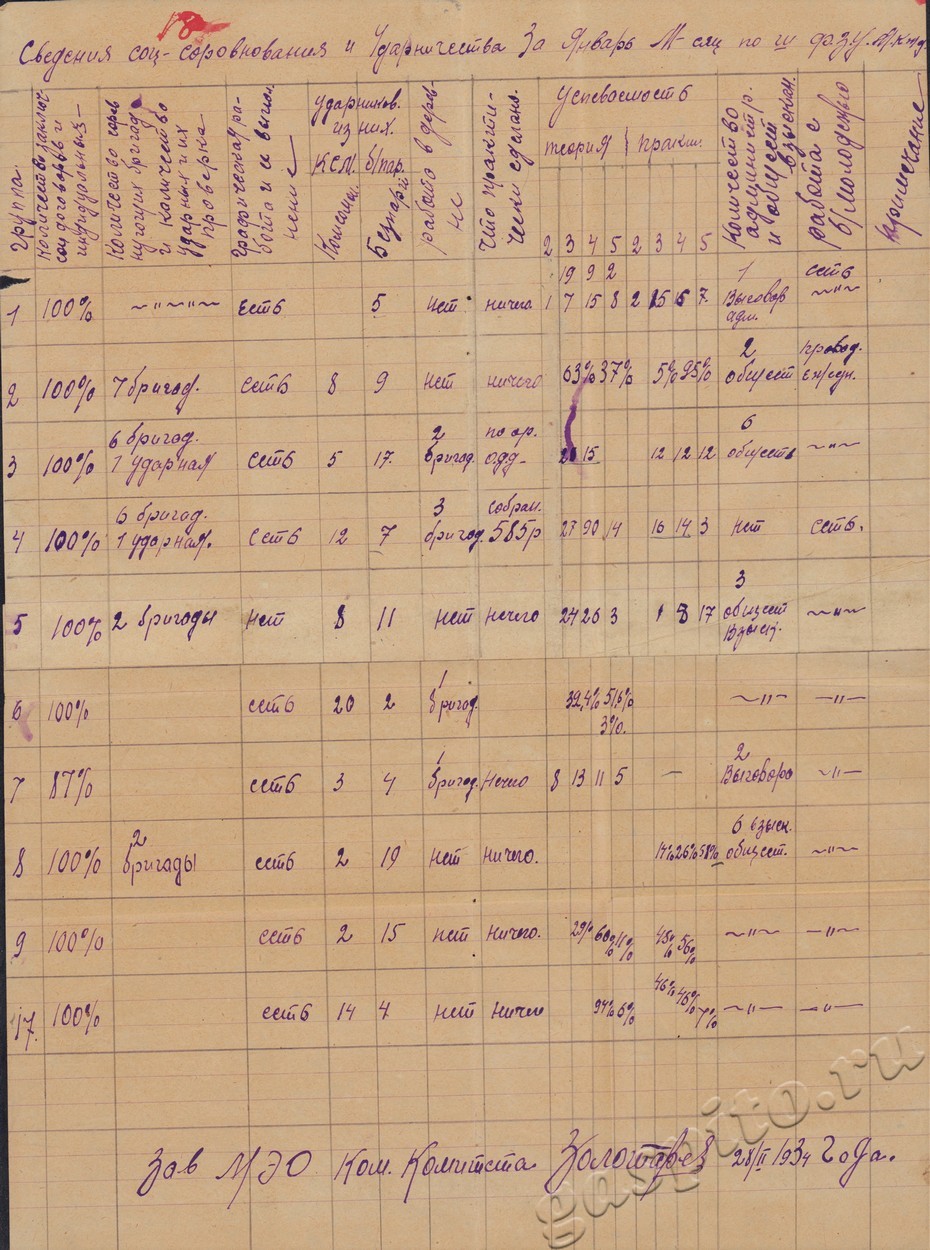 18
Сведения соц-соровнования и Ударничества За Январь М-сяц по ш ФЗУ
Группа
Количество заключ.
соцдоговоров и
индувидуальных-
Количество сорев
нующих бригад
и количество
ударных и их
проверка
Графическая ра-
бота и ее выпол
нение
Ударников.
из них.
КСМ. б/пар.
Комсомол.
Безпарт
работа в дерев
не
что практи-
чески сделан.
Успеваемость
теория практик.
2 3 4 5 2 3 4 5
Количество
администр.
и общест
взыскан.
работа с
б/молодежью
примечание
19 9 2 1 есть
1 100% —"— —"— Есть 5 нет ничего 1 7 15 8 2 15 6 7 Выговор —"—
адм.
2 провод.
2 100% 7 бригад. есть 8 9 нет ничего 63% 37% 5% 95% общест ежедн.
6 бригад. 2 по ор. 6
3 100% 1 ударная есть 5 17. бригад. одд- 20 15 12 12 12 обществ —"—
6 бригад. 3 собран.
4 100% 1 ударная. есть 12 7 бригад. 585р 27 90 14 16 14 3 нет есть.
3
5 100% 2 бригады нет 8 11 нет нечего 24 26 3 1 8 17 общест —"—
взыск.
1
6 100% есть 20 2 бригад. 39,4% 51,6% —"— —"—
3%.
1 2
7 87% есть 3 4 бригад. Нечго 8 13 11 5 — Выговора —"—
2 6 взыск.
8 100% бригады есть 2 19 нет ничего. 17% 26% 58% общест. —"—
9 100% есть 2 15 нет ничего. 29% 60% 11% 45% 56% —"— —"—
17. 100% есть 14 4 нет ничего 94% 6% 46% 46% 7% —"— —"—
Зав МЭО Ком. Комитета Золотарев 28/II 1934 Года.
gaspito.ru